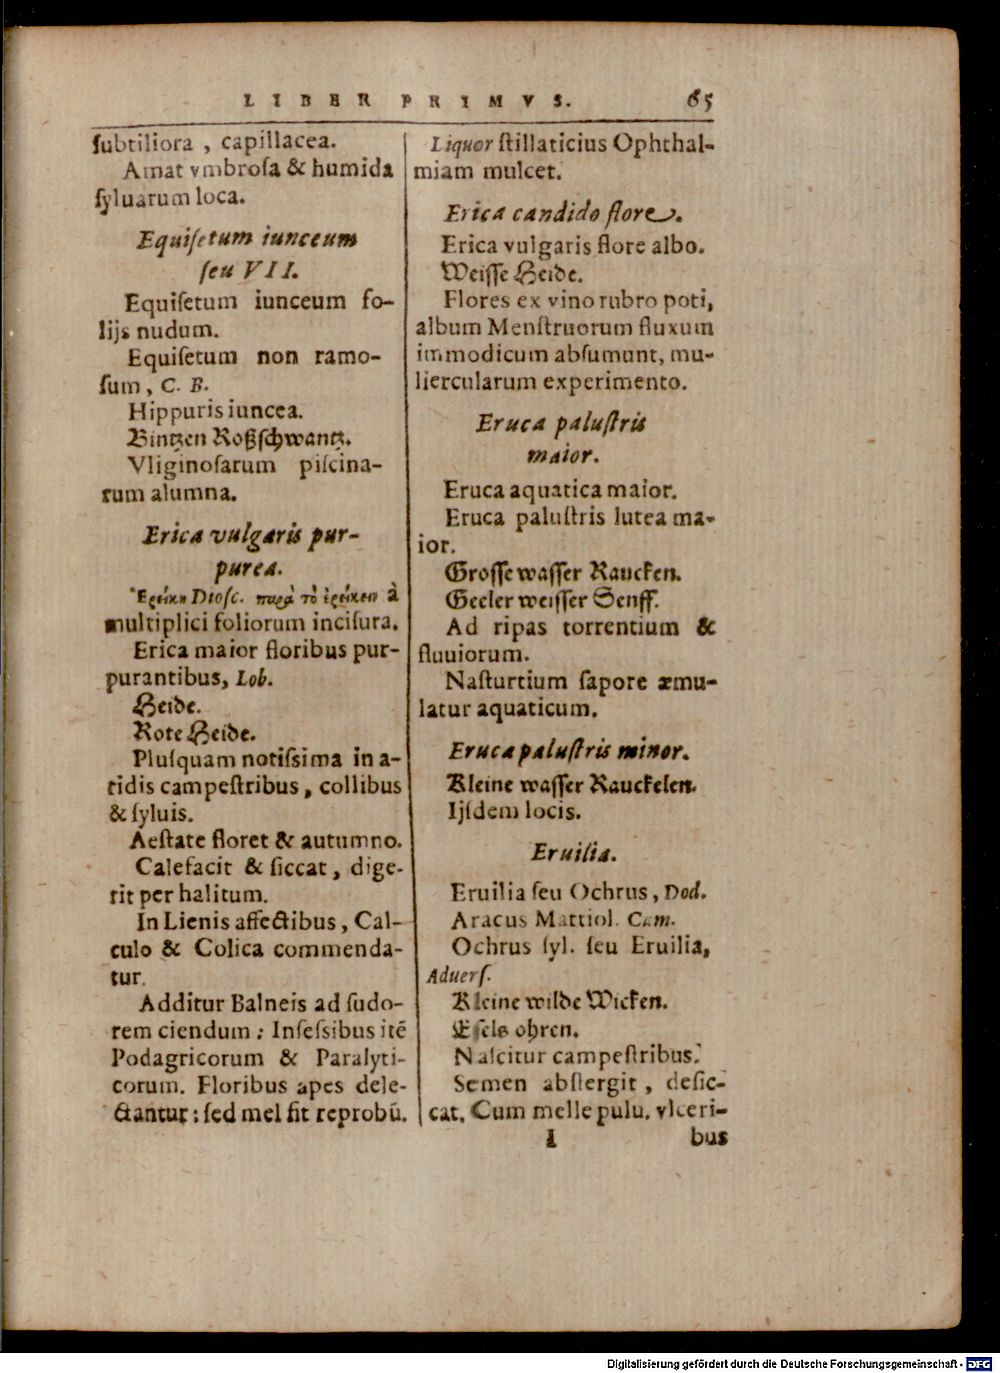 LIBER PRIMVS. 65
ſubtiliora, capillacea.
Amat vmbroſa & humida
ſyluarum loca.
Equiſetum iunceum
ſeu VII.
Equiſetum iunceum fo-
lijs nudum.
Equiſetum non ramo-
ſum, C. B.
Hippuris iuncea.
Bintzen Roßſchwantz.
Vliginoſarum piſcina-
rum alumna.
Erica vulgaris pur-
purea.
Ἐρείκη Dioſc. παρὰ τὸ ἐρείκειν à
multiplici foliorum inciſura.
Erica maior floribus pur-
purantibus, Lob.
Heide.
Rote Heide.
Pluſquam notiſsima in a-
ridis campeſtribus, collibus
& ſyluis.
Aeſtate floret & autumno.
Calefacit & ſiccat, dige-
rit per halitum.
In Lienis affectibus, Cal-
culo & Colica commenda-
tur.
Additur Balneis ad ſudo-
rem ciendum: Inſeſsibus itē
Podagricorum & Paralyti-
corum. Floribus apes dele-
ctantur: ſed mel fit reprobū.
Liquor ſtillaticius Ophthal-
miam mulcet.
Erica candido flore.
Erica vulgaris flore albo.
Weiſſe Heide.
Flores ex vino rubro poti,
album Menſtruorum fluxum
immodicum abſumunt, mu-
liercularum experimento.
Eruca paluſtris
maior.
Eruca aquatica maior.
Eruca paluſtris lutea ma-
ior.
Groſſe waſſer Raucken.
Geeler weiſſer Senff.
Ad ripas torrentium &
fluuiorum.
Naſturtium ſapore æmu-
latur aquaticum.
Eruca paluſtris minor.
Kleine waſſer Rauckelen.
Ijſdem locis.
Eruilia.
Eruilia ſeu Ochrus, Dod.
Aracus Mattiol. Cam.
Ochrus ſyl. ſeu Eruilia,
Aduerſ.
Kleine wilde Wicken.
Eſels ohren.
Naſcitur campeſtribus.
Semen abſtergit, deſic-
cat. Cum melle pulu. vlceri-
I bus
Digitalisierung gefördert durch die Deutsche Forschungsgemeinschaft - DFG